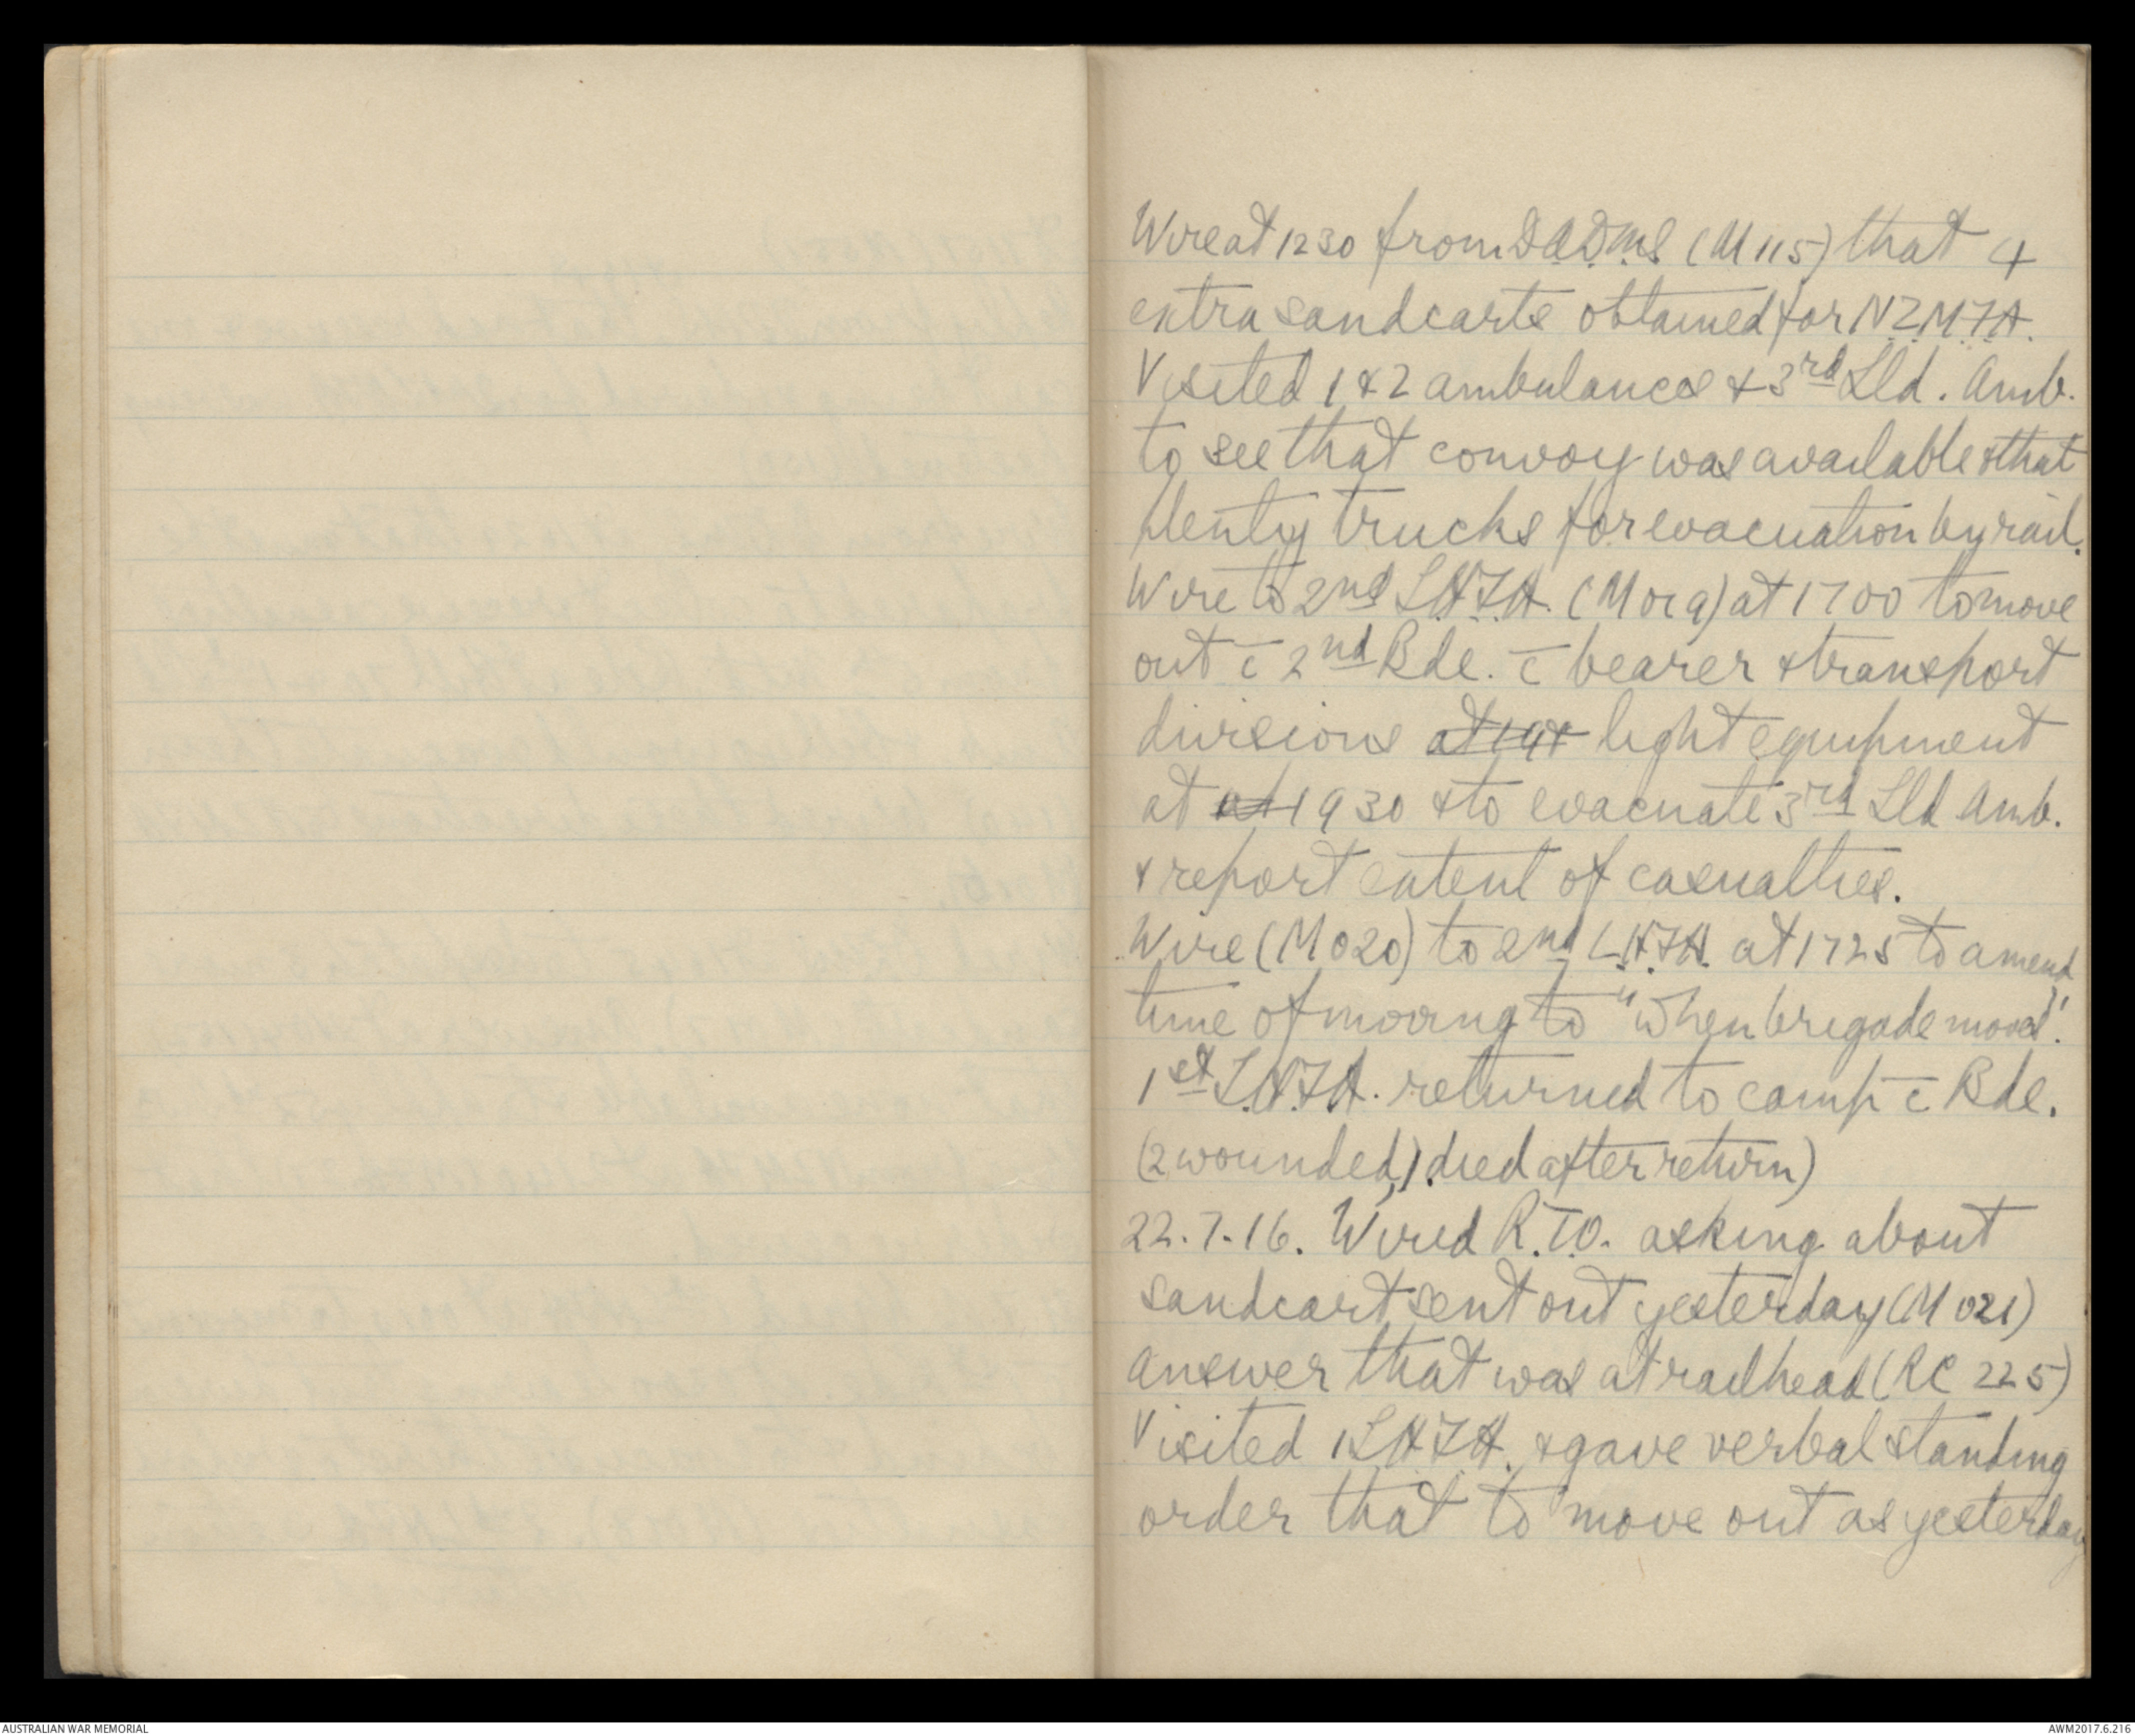 Wire at 1230 from D.A.D.M.S (M 115) that 4
extra sandcarts obtained for N.Z.M.F.A.
Visited 1 & 2 ambulances & 3rd Lld. Amb.
to see that convoy was available & that
plenty trucks for evacuation by rail.
Wire to 2nd L.H.F.A. (M 019) at 1700 to move
out c̄ 2nd Bde. c̄ bearer & transport
divisions light equipment
at 1930 & to evacuate 3rd Lld Amb.
& report extent of casualties.
Wire (M 020) to 2nd L.H.F.A. at 1725 to amend
time of moving to "when brigade moves".
1st L.H.F.A. returned to camp c̄ Bde.
(2 wounded, 1 died after return)
22.7.16. Wired R.T.O. asking about
sandcart sent out yesterday (M 021)
Answer that was at railhead (RC 225)
Visited 1 L.H.F.A. & gave verbal standing
order that to move out as yesterday
AUSTRALIAN WAR MEMORIAL
AWM2017.6.216